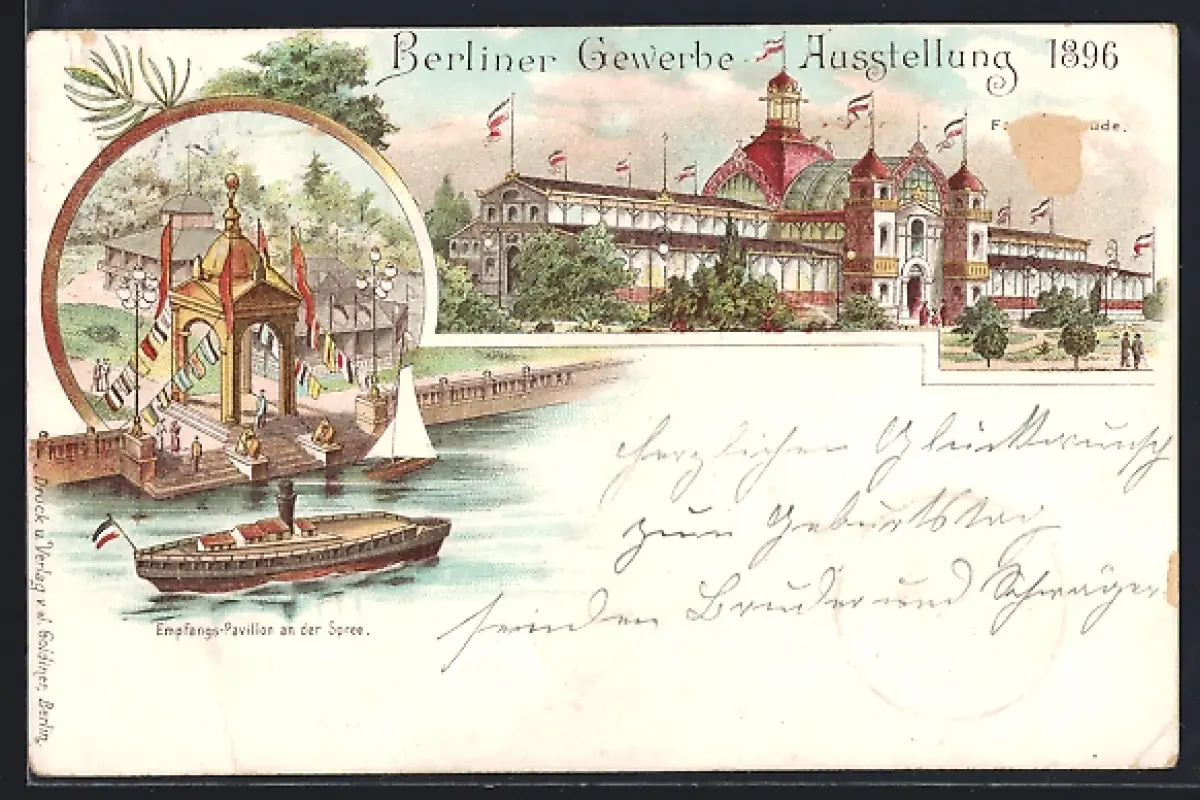 Berliner Gewerbe-Ausstellung 1896
Empfangs-Pavillon an der Spree.
Druck u. Verlag v. J. Goldiner, Berlin.
Herzlichen Glückwunsch
zum Geburtstag
senden Bruder und Schwäger